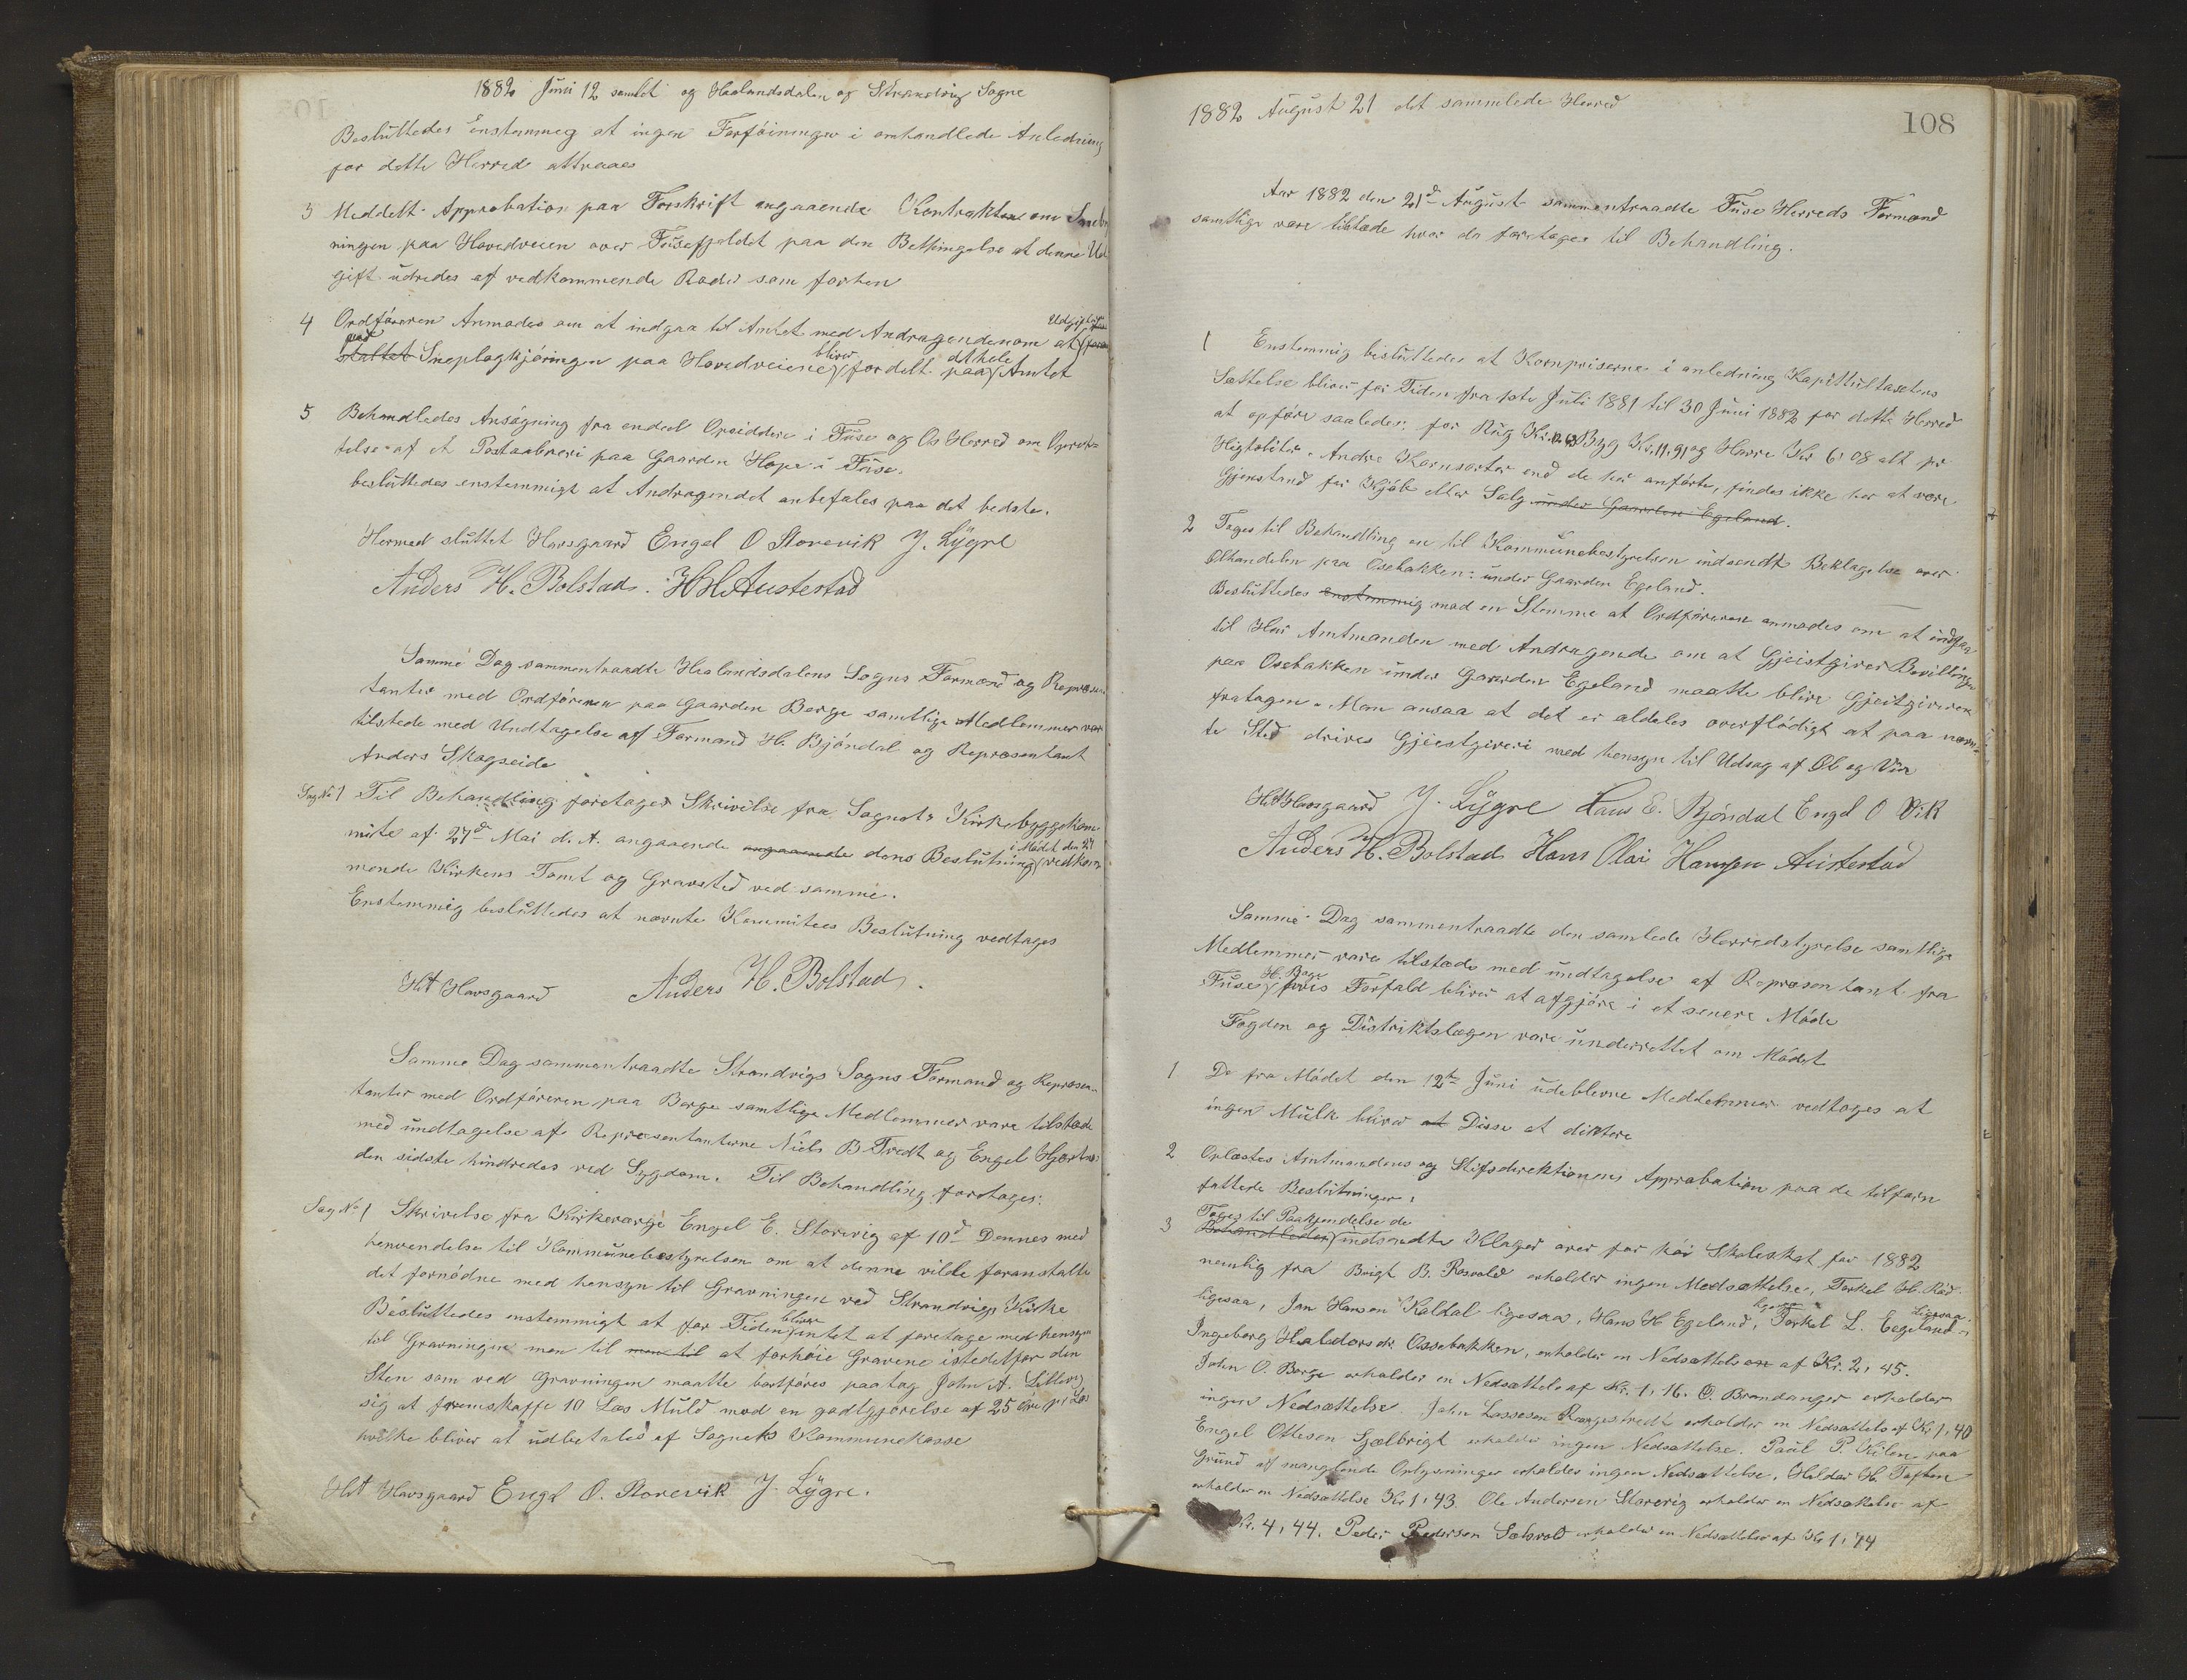 1882 Juni 12 samlet og Haalandsdalen og Strandvig Sogne
Besluttedes Enstemmig at ingen Forföininger i omhandlede Anledning
for dette Herred attraaes
3 Meddelt Approbation paa Forskrift angaaende Kontrakten om
ningen paa Hovedveien over Fusefjeldet paa den Bethingelse at denne Ud
gift udredes af vedkommende Roder som forhen
4 Ordföreren Anmodes om at indgaa til Amtet med Andragende om at Udgifterne
ved staltet Sneplogkjöringen paa Hovedveiene bliver fordelt paa det hele Amtet
5 Behandledes Ansögning fra endeel Opsiddere i Fuse og Os Herred om Opret=
telse af et Postaabneri paa Gaarden Hope i Fuse.
besluttedes enstemmigt at Andragendet anbefales paa det bedste.
Hermed sluttet Havsgaard Engel O Storevik J. Lygre
Anders H. Bolstad. H H Austestad
Samme Dag sammentraadte Haalandsdalens Sogns Formænd og Repræsen
tanter med Ordföreren paa Gaarden Berge samtlige Medlemmer var
tilstede med Undtagelse af Formand H. Bjöndal og Repræsentant
Anders Skogseide
Sag No 1 Til Behandling foretages Skrivelse fra Sognets Kirkebyggekom
mite af 27d Mai d. A. angaaende angaaende dens Beslutning i Mödet den 27 vedkom
mende Kirkens Tomt og Gravsted ved samme.
Enstemmig besluttedes at nævnte Kommitees Beslutning vedtages
HH Havsgaard Anders H. Bolstad.
Samme Dag sammentraadte Strandvigs Sogns Formænd og Repræsen
tanter med Ordföreren paa Berge samtlige Medlemmer vare tilstede
med undtagelse af Repræsentanterne Niels B Tredt og Engel Hjortnes
den sidste hindredes ved Sygdom. Til Behandling foretages:
Sag No 1 Skrivelse fra Kirkeværge Engel E. Storevig af 10d Dennes med
henvendelse til Kommunebestyrelsen om at denne vilde foranstalte
det fornödne med hensyn til Gravningen ved Strandvigs Kirke
Besluttedes enstemmigt at for Tiden bliver intet at foretage med hensyn
til Gravningen men til men til at forhöie Gravene istedetfor den
Sten som ved Gravningen maatte bortföres paatog John A. Litlevig
sig at fremskaffe 10 Læs Muld mod en godtgjörelse af 25 Öre pr Læs
hvilke bliver at udbetales af Sognets Kommunekasse
HH Havsgaard Engel O. Storevik J. Lygre.
1882 August 21 det sammlede Herred
108
Aar 1882 den 21d August sammentraadte Fuse Herreds Formænd
samtlige vare tilstæde hvor da foretages til Behandling.
1 Enstemmig besluttedes at Kornpriserne i anledning Kapitultaxtens
Sættelse bliver for Tiden fra 1ste Juli 1881 til 30 Juni 1882 for dette Herred
at opföre saaledes: for Rug Kr. Byg Kr. 11,91 og Havre Kr 6,08 alt pr
Hegtoliter. Andre Kornsorter end de her anförte, findes ikke her at være
Gjenstand for Kjöb eller Salg under Gaarden Egeland.
2 Toges til Behandling en til Kommunebestyrelsen indsendt Beklagelse over
Ölhandelen paa Osebakken under Gaarden Egeland.
Besluttedes enstemmig mod en Stemme at Ordföreren anmodes om at indgaa
til Her Amtmanden med Andragende om at Gjæstgiver Bevillingen
paa Osebakken under Gaarden Egeland maatte blive Gjestgiveren
fratagen. Man ansaa at det er aldeles overflödigt at paa nævn=
te Sted drives Gjæstgiveri med hensyn til Udsag af Öl og Vin
HH Havsgaard J. Lygre Hans E. Bjöndal Engel O Vik
Anders H. Bolstad Hans Olai Hansen Austestad
Samme Dag sammentraadte den samlede Herredstyrelse samtlige
Medlemmer vare tilstæde med undtagelse af Repræsentant fra
Fuse H. Boge hvis Forfald bliver at afgjöre i et senere Möde
Fogden og Distriktslægen vare underrettet om Mödet
1 De fra Mödet den 12te Juni udeblevne Medlemmer vedtages at
ingen Mulk bliver at Disse at diktere
2 Oplæstes Amtmandens og Stifsdirektionens Approbation paa de tilforn
fattede Beslutninger.
3 Toges til Paakjendelse de Behandledes indsendte Klager over for höi Skoleskat for 1882
nemlig fra Brigt B. Rosvold erholder ingen Nedsættelse, Torkel H. Röd
ligesaa, Jan Hansen Kaldal ligesaa, Hans H Egeland, ligesaa Torkel L. Eegeland ligesaa
Ingeborg Haldorsdr. Ossebakken, erholder en Nedsættels en af Kr. 2,45.
John O. Berge erholder en Nedsættelse af Kr. 1,16. O. Brandanger erholder
ingen Nedsættelse John Lassesen Rangestredt erholder en Nedsættels af Kr 1,40
Engel Ottesen Gjelbrigt erholder ingen Nedsættelse. Paul P. Kilen paa
Grund af manglende Oplysninger erholdes ingen Nedsættelse. Haldor H. Toften
erholder en Nedsættelse Kr 1,43. Ole Andersen Storevig erholder en Nedsættelse af
Kr. 4,44. Peder Pedersen Sælsvold erholder en Nedsættelse af Kr 1,74